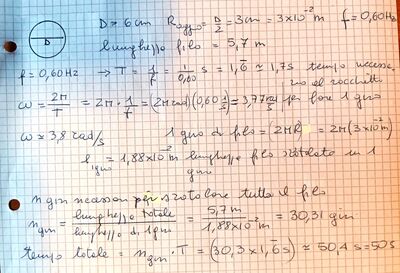 D
D = 6cm Raggio = D/2 = 3cm = 3×10⁻² m f = 0,60Hz
lunghezza filo = 5,7 m
f = 0,60 Hz → T = 1/f = 1/0,60 s = 1,6̄ ≃ 1,7s tempo necessa-
rio al rocchetto
ω = 2π/T = 2π · 1/T = (2π rad)(0,60 1/s) = 3,77 rad/s per fare 1 giro
ω ≃ 3,8 rad/s 1 giro di filo = (2πR) = 2π(3×10⁻² m)
l 1giro = 1,88×10⁻² m lunghezza filo srotolato in 1
giro
n giri necessari per srotolare tutto il filo
n giri = lunghezza totale / lunghezza di 1 giro = 5,7 m / 1,88×10⁻² m = 30,31 giri
tempo totale = n giri · T = (30,3 × 1,6̄ s) ≃ 50,4 s = 50s